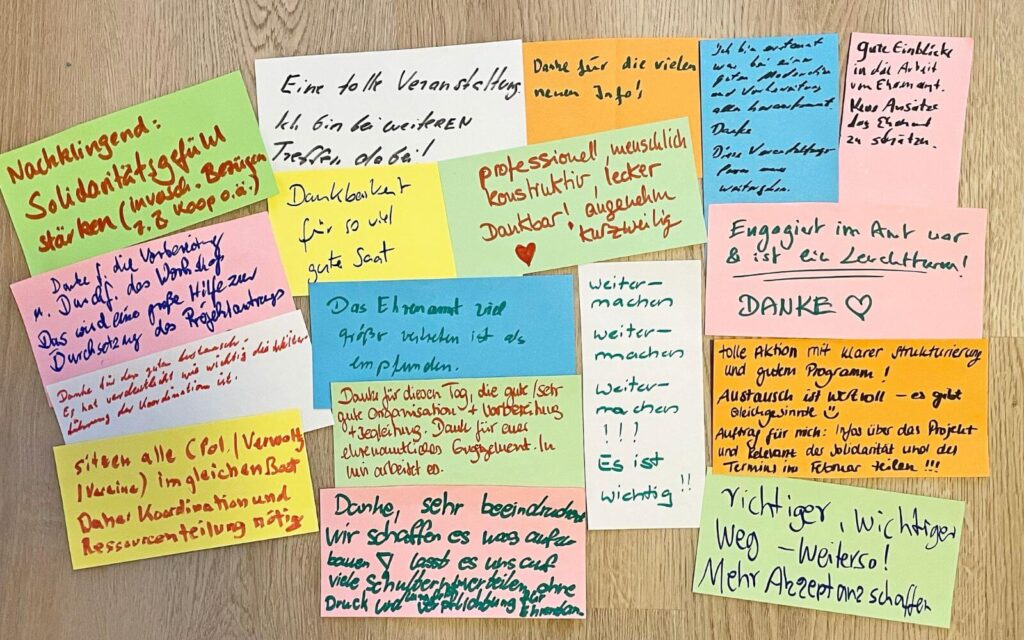 Nachklingend:
Solidaritätsgefühl
stärken (invasch. Bezügen
z.B Koop o.ä.)
Eine tolle Veranstaltung
Ich bin bei weiteren
Treffen dabei!
Danke für die vielen
neuen Info's!
Ich bin erstaunt
was bei einer
guten Moderation
und Vorbereitung
alles herauskommt.
Danke
Diese Veranstaltungs
muss man
Gute Einblicke
in die Arbeit
vom Ehrenamt.
Neue Ansätze
das Ehrenamt
zu schätzen.
Dankbarkeit
für so viel
gute Saat
professionell, menschlich
konstruktiv, lecker
Dankbar! angenehm
kurzweilig
Engagiert im Amt war
& ist ein Leuchtturm!
DANKE ♡
Danke f. die Vorbereitung
u. Durchf. des Workshops
Das wird eine große Hilfe zur
Durchsetzung des Projektantrags
Danke für den guten Austausch -
Es hat verdeutlicht wie wichtig die Weiter-
führung der Koordination ist.
Das Ehrenamt viel
größer vertreten ist als
empfunden.
weiter-
machen
weiter-
machen
weiter-
machen
!!!
Es ist
wichtig!!
tolle Aktion mit klarer Strukturierung
und gutem Programm!
Austausch ist wertvoll – es gibt
Gleichgesinnte ☺
Auftrag für mich: Infos über das Projekt
und Relevanz der Solidarität und der
Termins im Februar teilen !!!
Danke für diesen Tag, die gute / sehr
gute Organisation + Vorbereitung
+ Begleitung. Dank für euer
ehrenamtliches Engagement. In
mir arbeitet es.
sitzen alle (Pol. / Verwaltg
/ Vereine) im gleichen Boot
Daher Koordination und
Ressourcenteilung nötig
Danke, sehr beeindruckend
wir schaffen es was aufzu
bauen lasst es uns auf
viele Schultern verteilen ohne
Druck und langfrist Verpflichtung für Ehrenam.
richtiger, wichtiger
Weg – Weiterso!
Mehr Akzeptanz schaffen